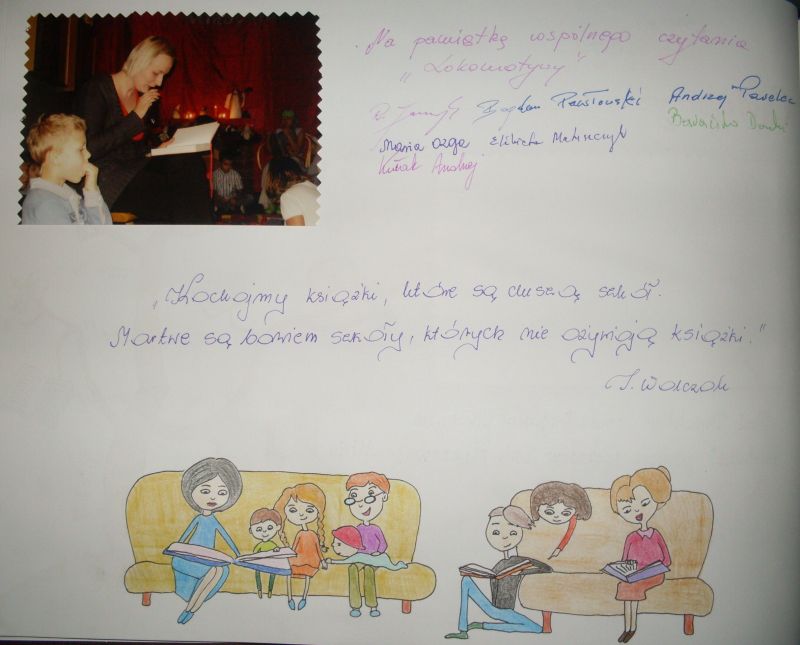 Na pamiątkę wspólnego czytania
"Lokomotywy"
Bogdan Pawłowski Andrzej Pawelec
Maria Ozga Elżbieta
Kułak Andrzej
"Kochajmy książki, które są duszą szkół.
Martwe są bowiem szkoły, których nie ożywiają książki."
J. Walczak